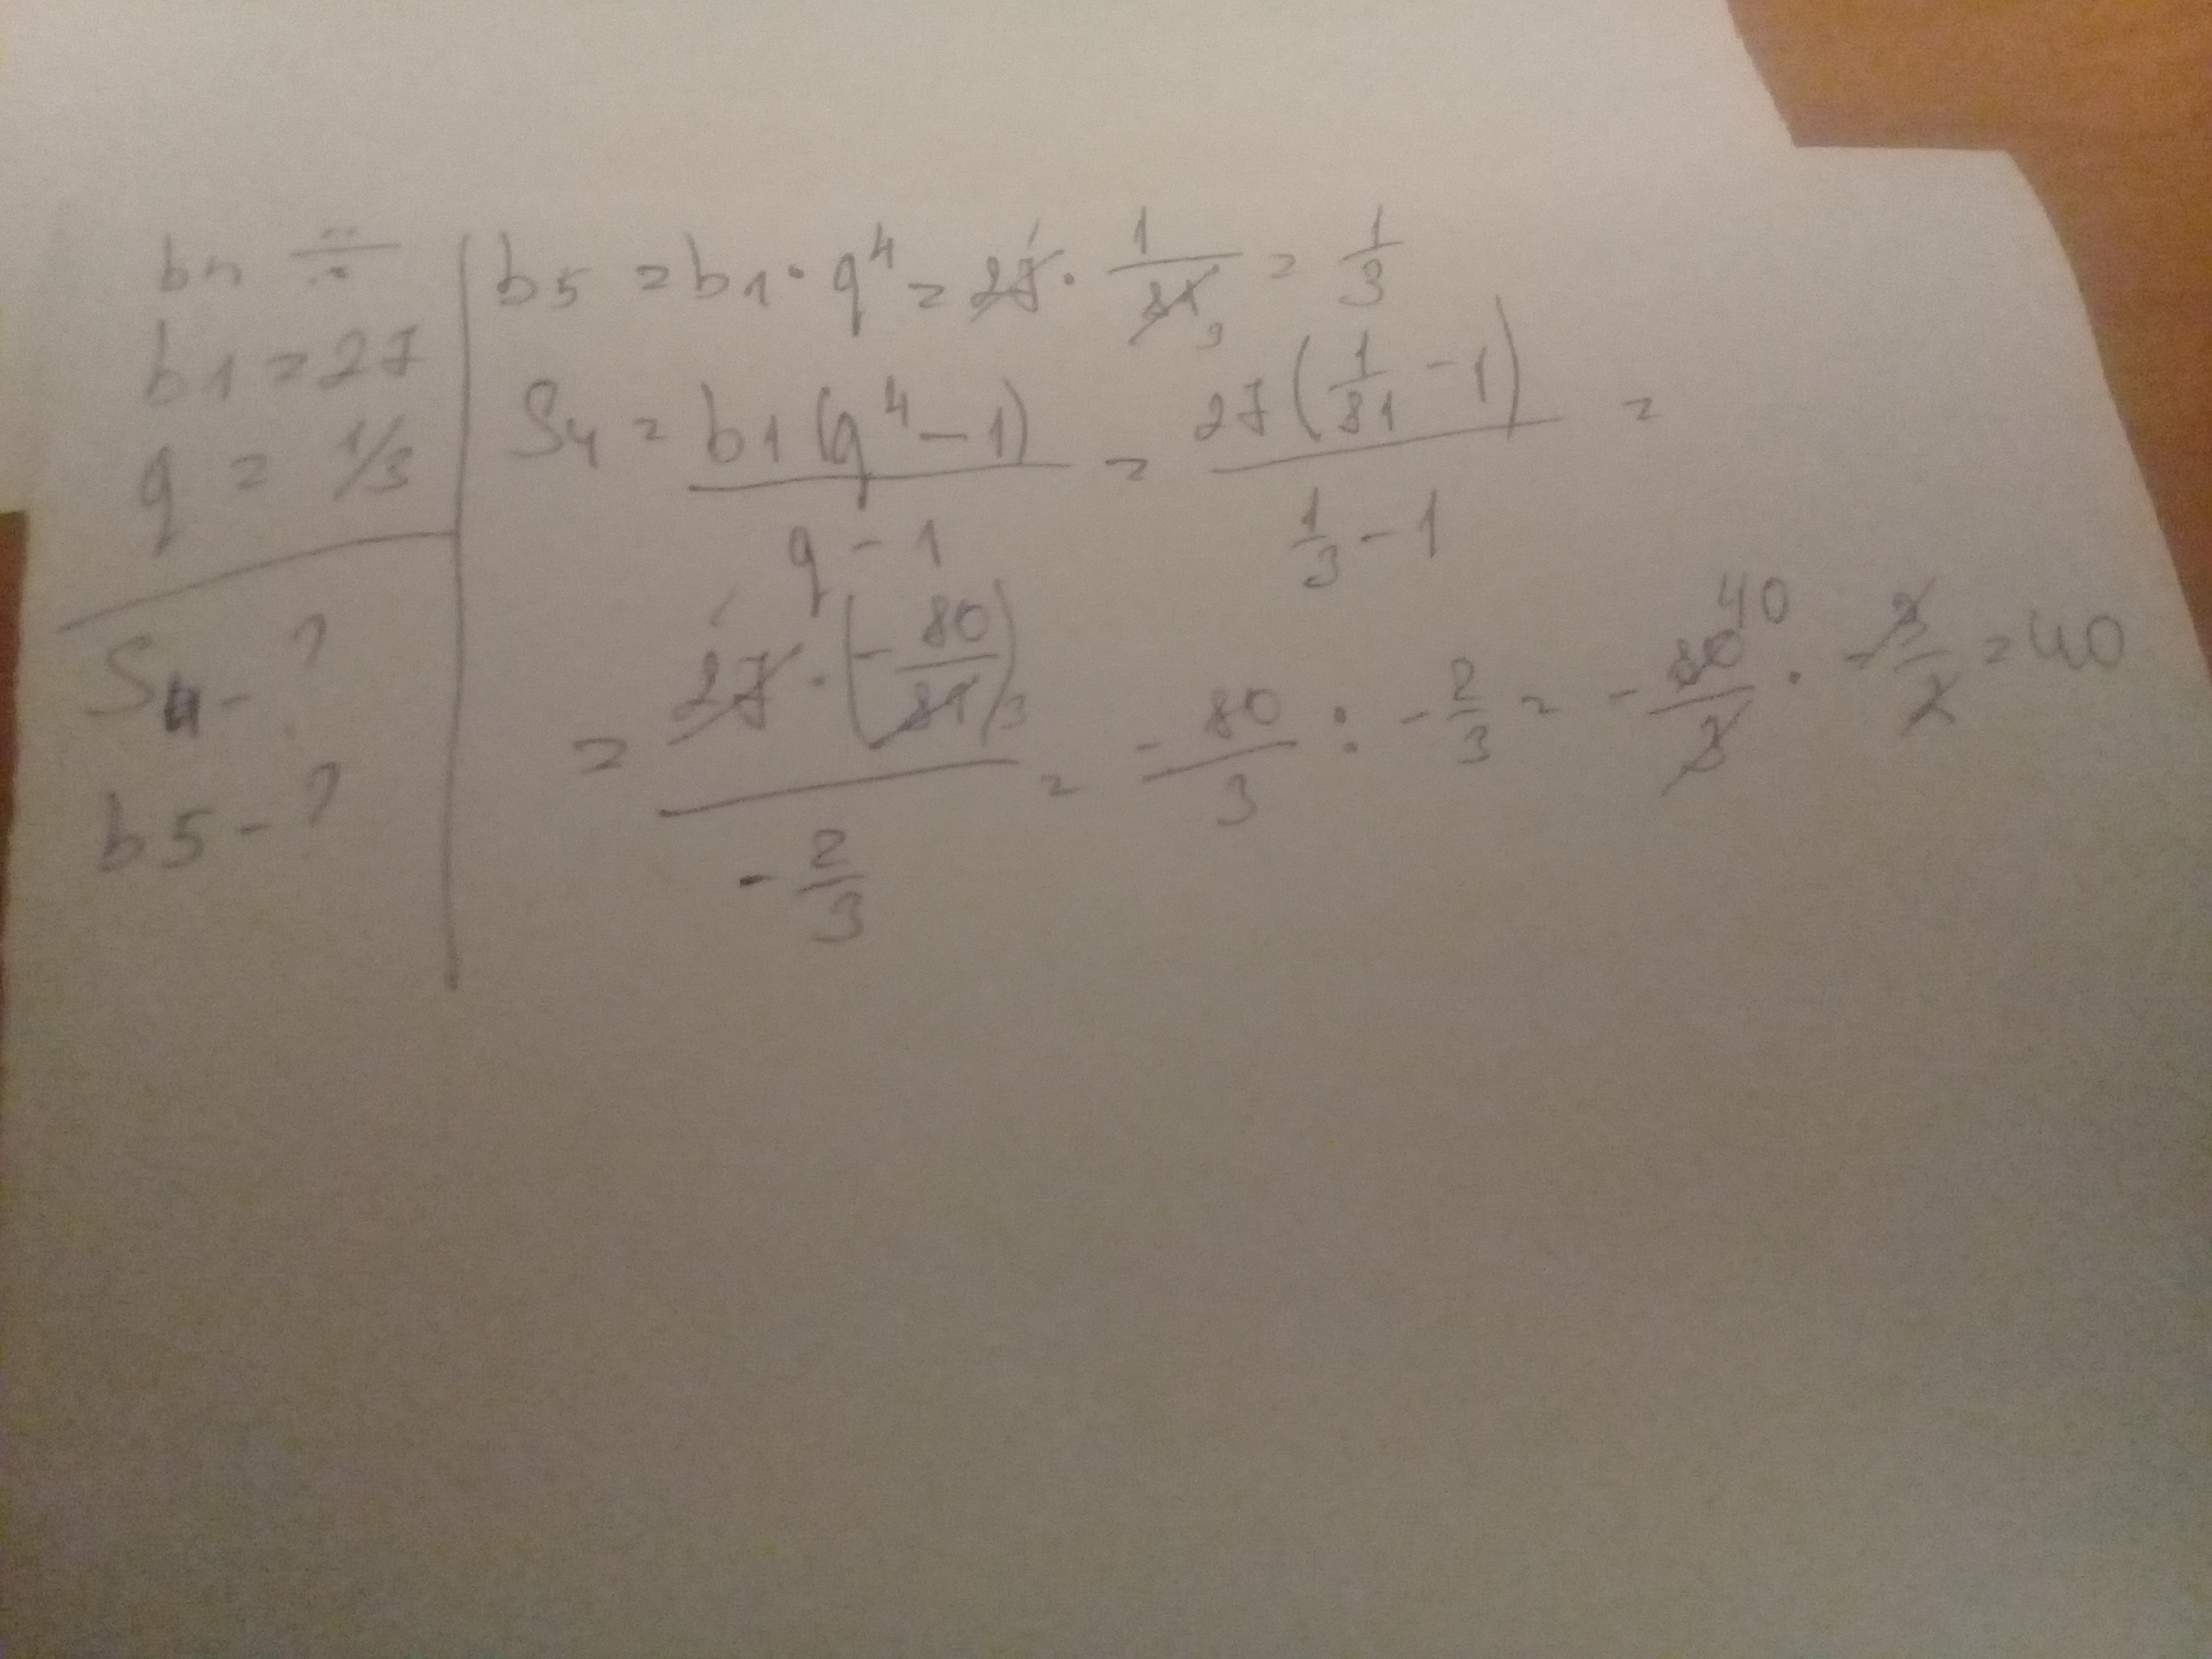 bn ÷
b1 = 27
q = 1/3
S4 - ?
b5 - ?
b5 = b1 · q^4 = 27 · 1/81 = 1/3
S4 = b1(q^4 - 1) / q - 1 = 27(1/81 - 1) / 1/3 - 1 =
= 27 · (- 80/81) / - 2/3 = - 80/3 : - 2/3 = - 80/3 · - 3/2 = 40